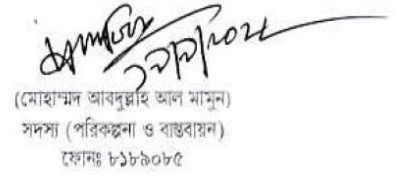 (মোহাম্মদ আবদুল্লাহ আল মামুন)
সদস্য (পরিকল্পনা ও বাস্তবায়ন)
ফোনঃ ৮১৮৯০৮৫